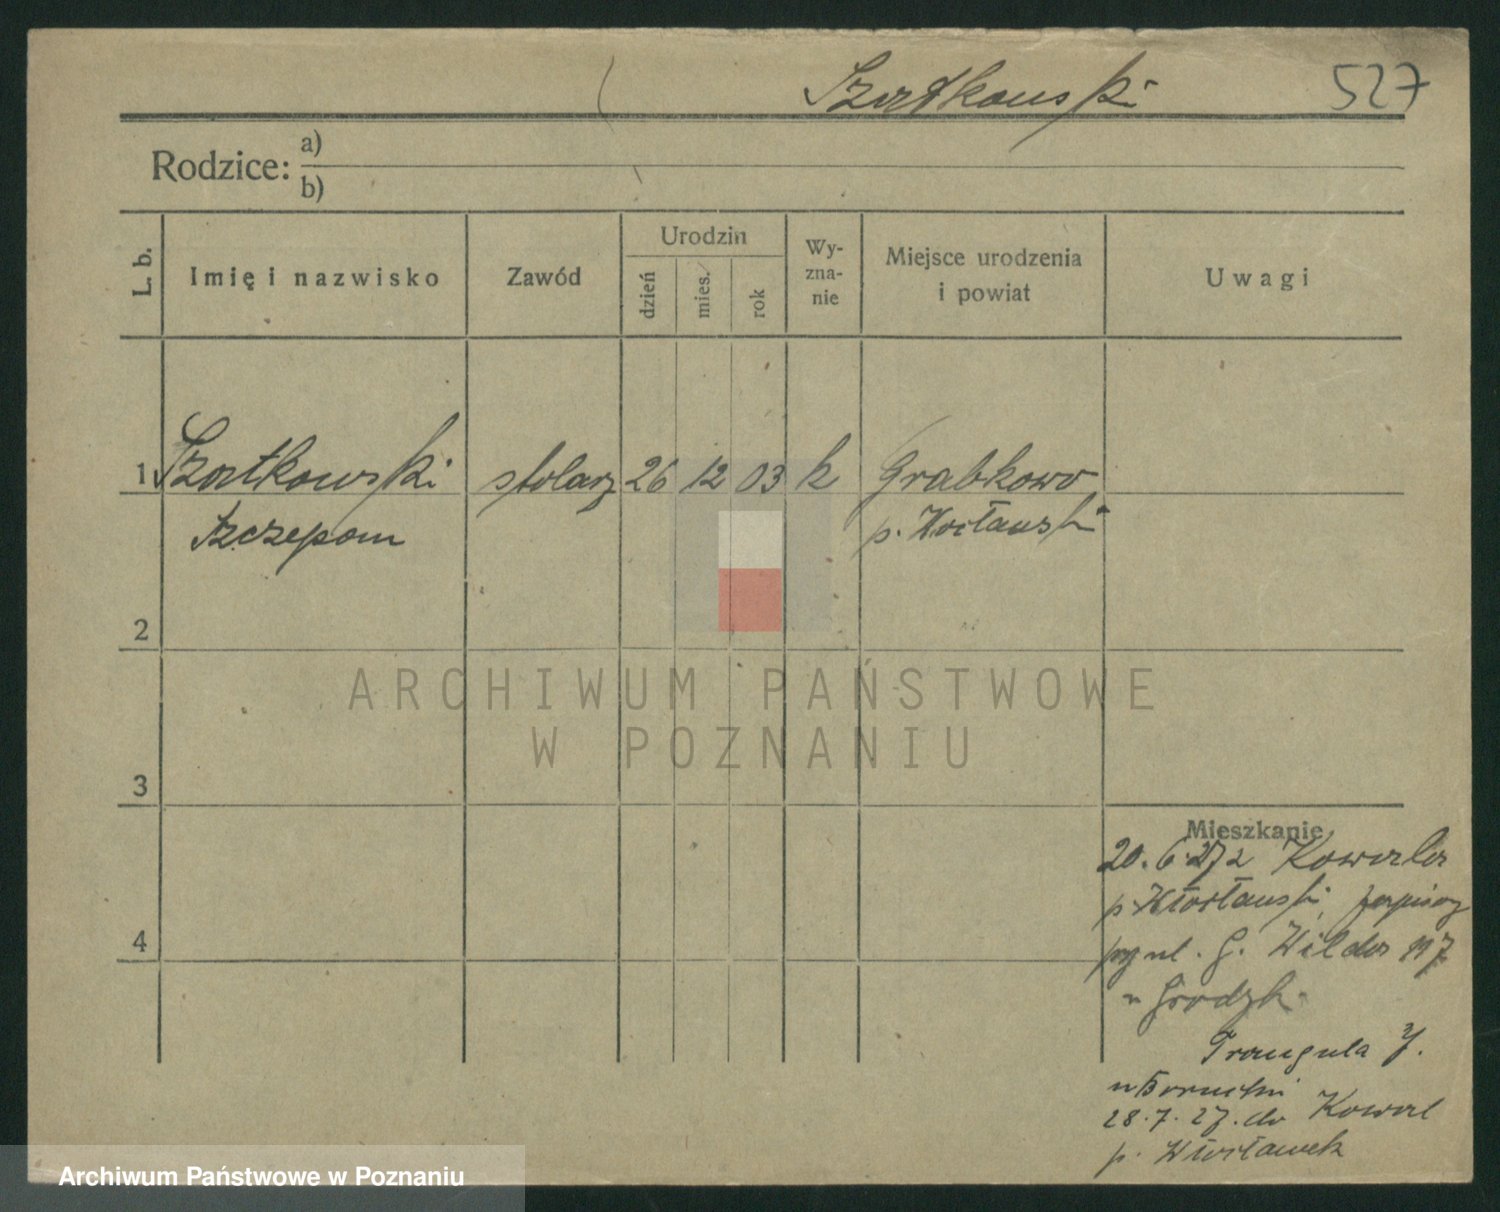 Szatkowski 527
Rodzice: a)
b)
L. b.
Imię i nazwisko
Zawód
Urodzin
dzień
mies.
rok
Wy-
zna-
nie
Miejsce urodzenia
i powiat
Uwagi
1 Szatkowski stolarz 26 12 03 k Grabkowo
Szczepan p. Włocławski
2
3
4
Mieszkanie
20.6.27 z Kowala
p. Włocławski,
przy ul. G. Wilda 117
u Grodzk.
u
28.7.27. do Kowal
p. Włocławek
ARCHIWUM PAŃSTWOWE
W POZNANIU
Archiwum Państwowe w Poznaniu